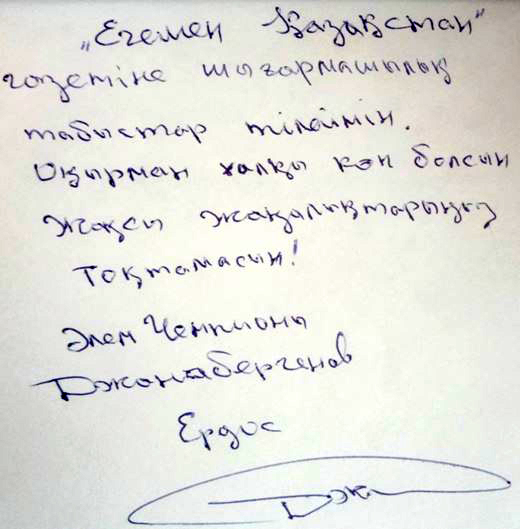 „Егемен Қазақстан"
газетіне шығармашылық
табыстар тілеймін.
Оқырман халқы көп болсын
Жақсы жаңалықтарыңыз
тоқтамасын!
Әлем Чемпионы
Джонабергенов
Ердос
Джа